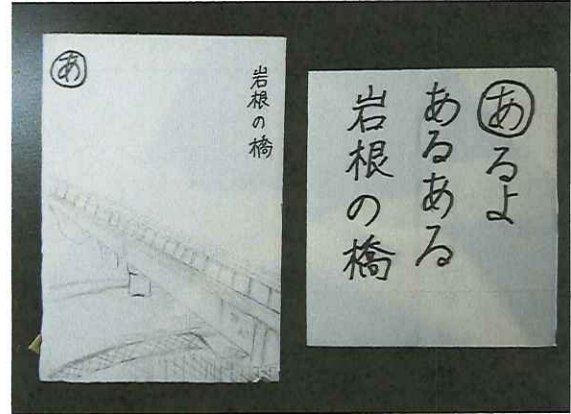 あ
岩根の橋
あるよ
あるある
岩根の橋